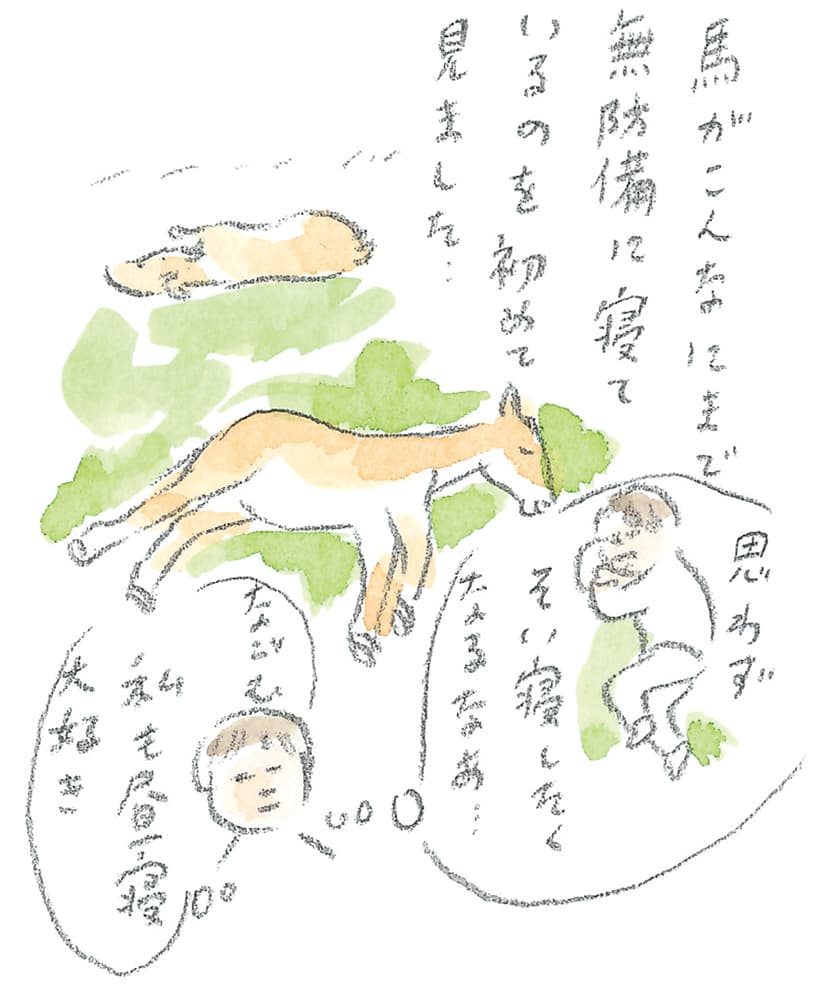 馬がこんなにまで
無防備に寝て
いるのを初めて
見ました…
思わず
そい寝したく
なるなあ…
なごむ
私も昼寝
大好き